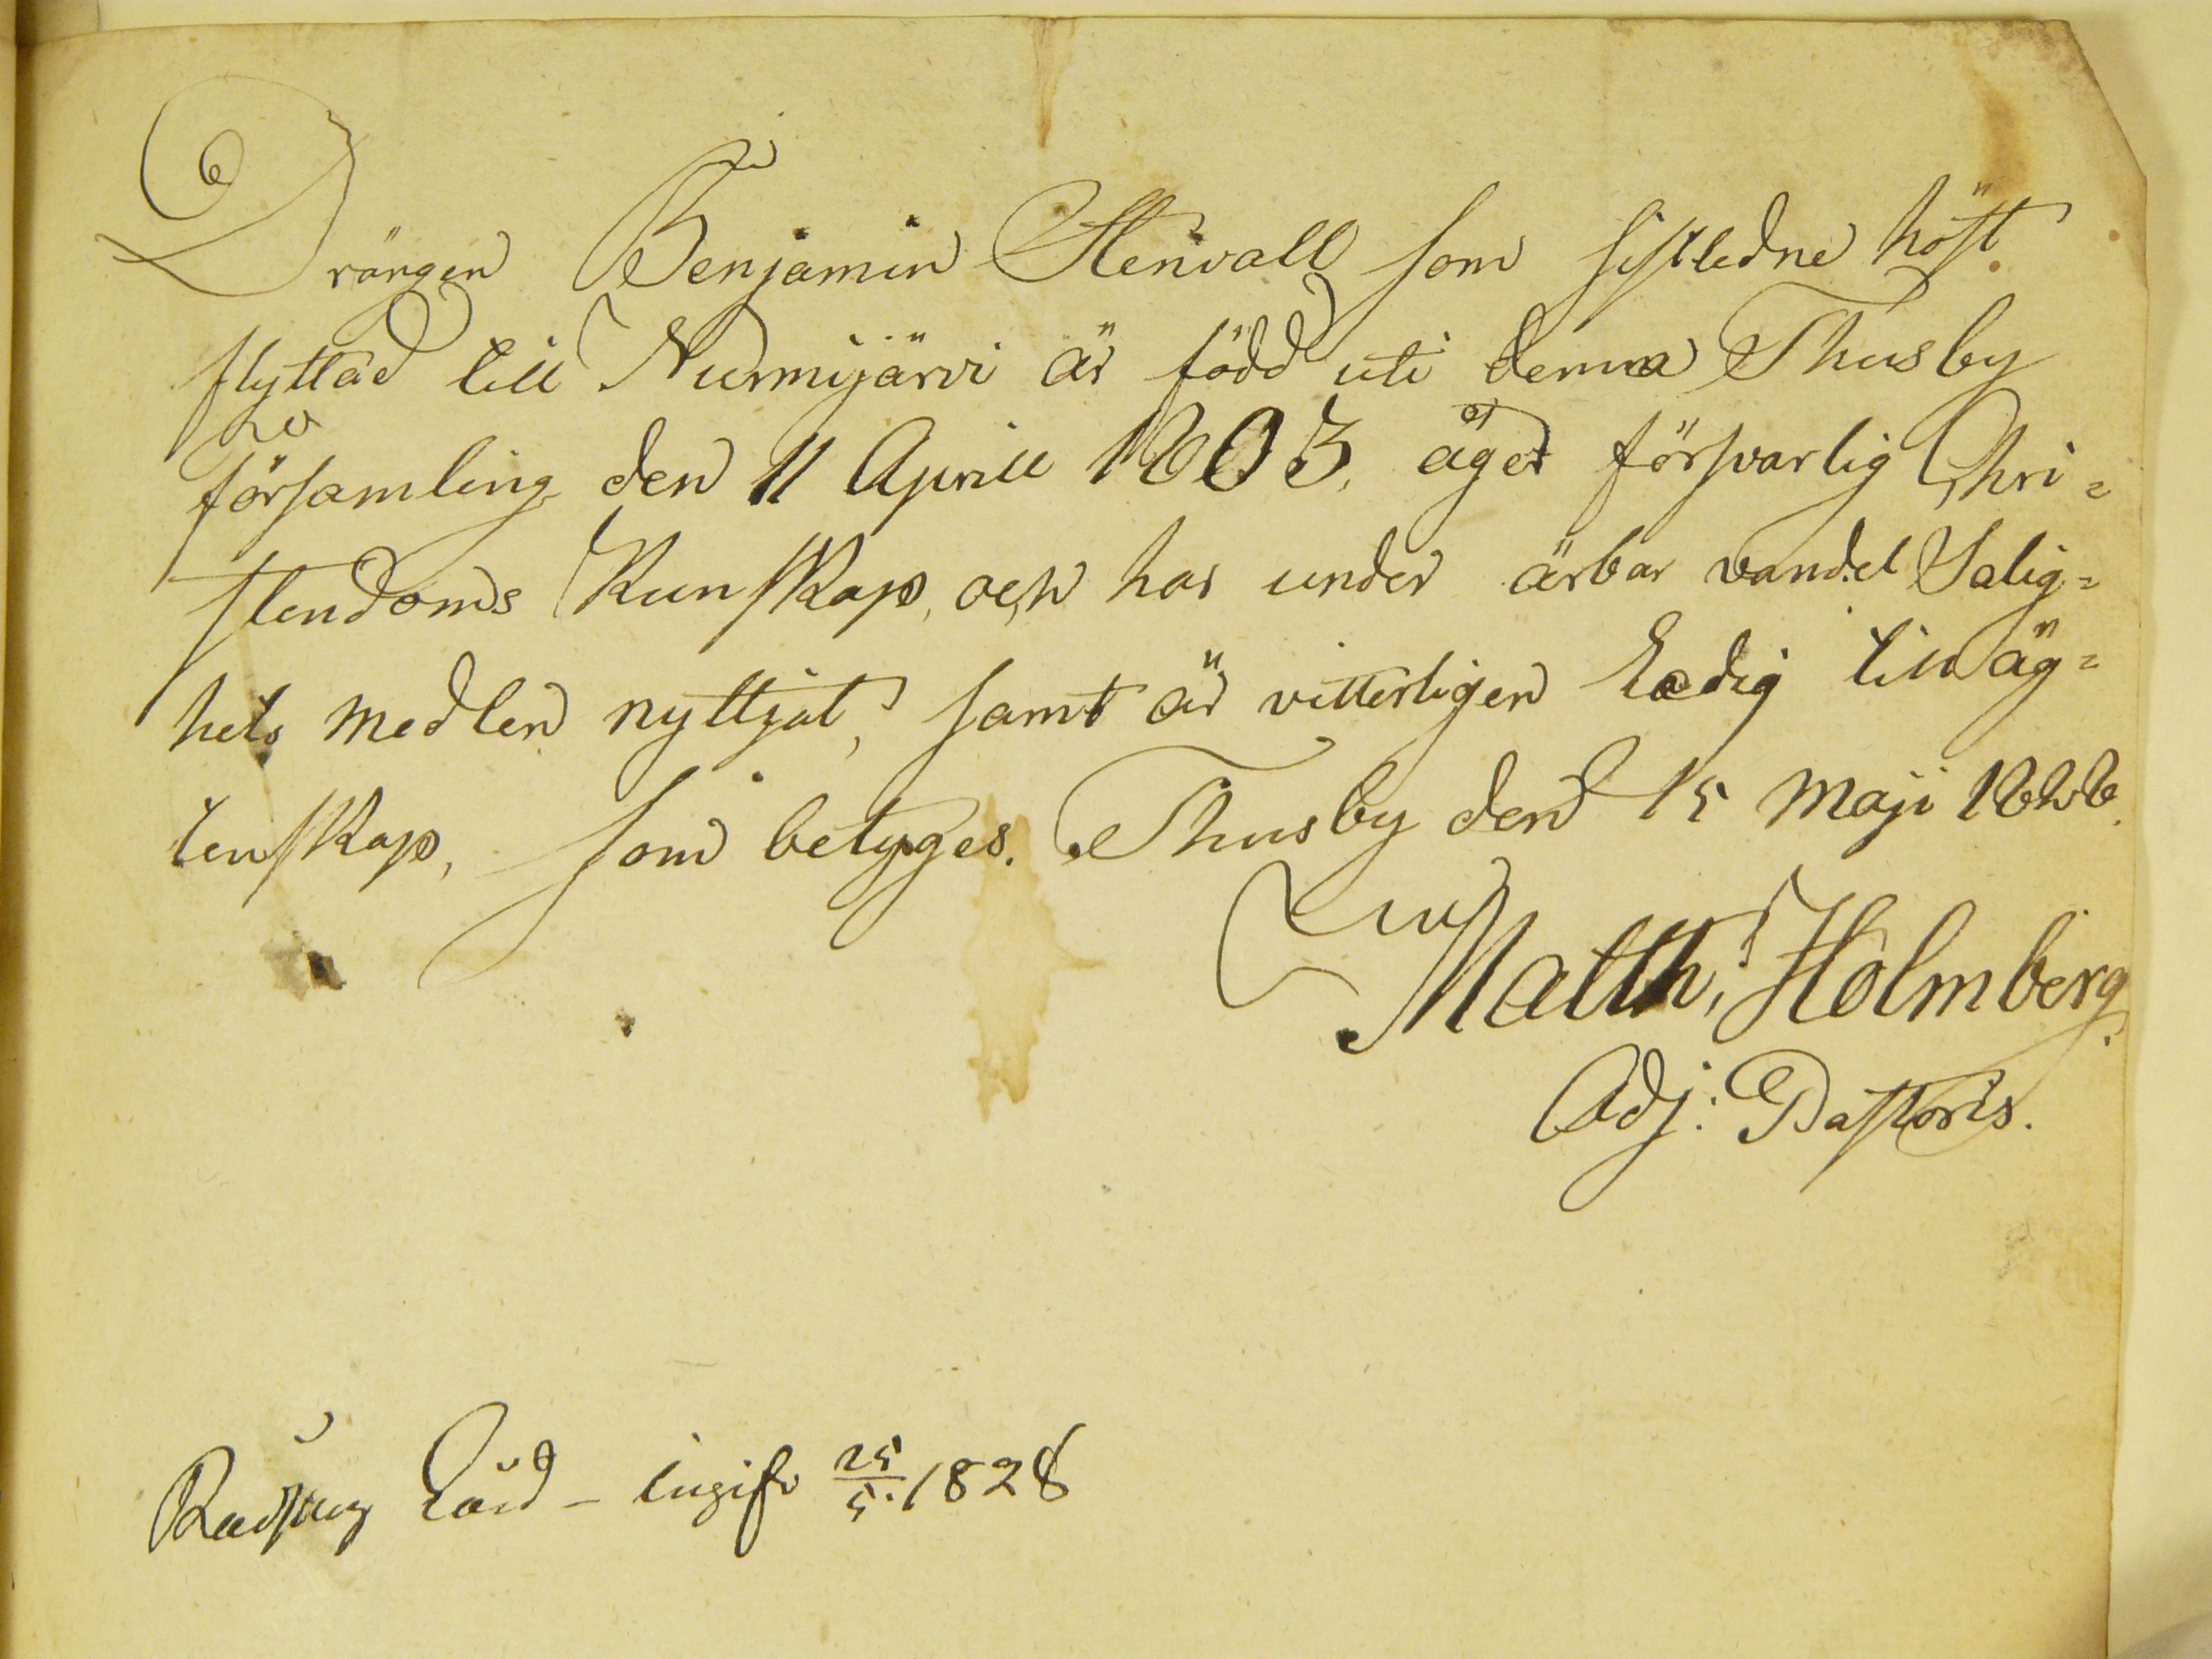 Drängen Benjamin Stenvall som sistledne höst
flyttad till Nurmijärvi är född uti denna Thusby
församling den 11 Aprill 1803, äger försvarlig Chri=
stendoms Kunskap, och har under ärbar vandel Salig=
hets medlen nyttjat, samt är vitterligen Ledig till äg=
tenskap, som betyges. Thusby den 15 Maji 1828.
Matth: Holmberg.
Adj: Pastoris.
ingift 25/5. 1828